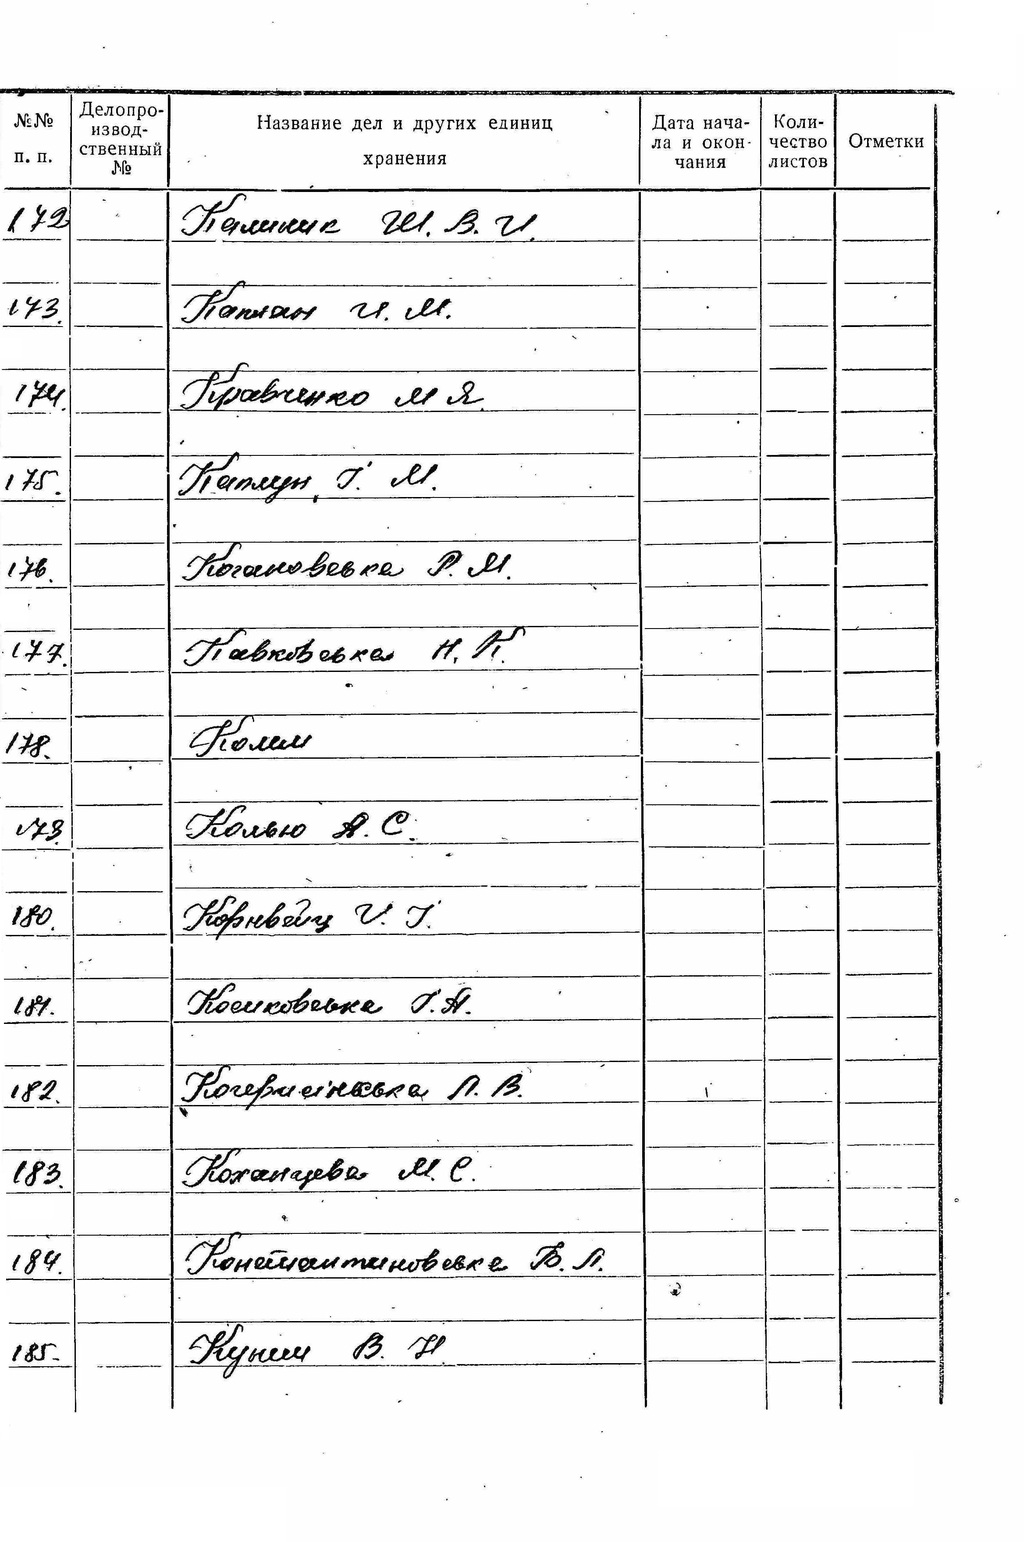 №№ п. п. Делопроизводственный № Название дел и других единиц хранения Дата начала и окончания Количество листов Отметки
172 Калиник Ш. В. И.
173. Каплан И. М.
174. Кравченко М Я.
175. Каплун Г. М.
176. Когановська Р. М.
177. Кавковська Н. К.
178. Колии
179. Колью А. С.
180. Корнвейц И. Г.
181. Косиковська Г. А.
182. Л. В.
183. Коханцева М. С.
184. Константиновська В. Л.
185. Куниц В. Н